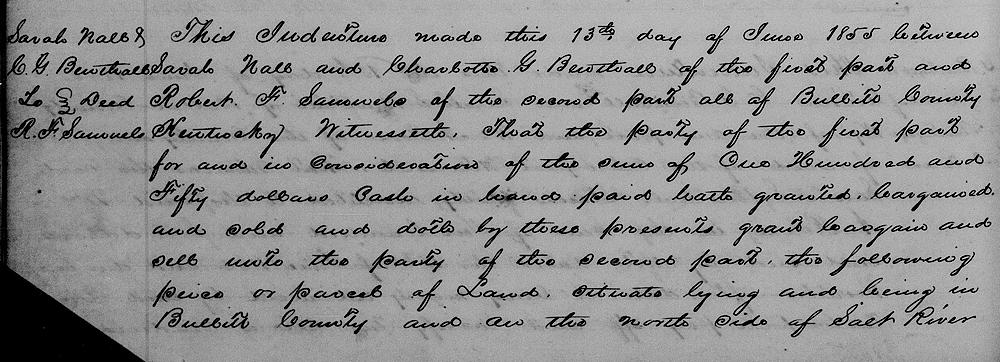 Sarah Nall &
C. G. Benthall
To Deed
R. F. Samuels
This Indenture made this 13th day of June 1855 between
Sarah Nall and Charlotte G. Benthall of the first part and
Robert. F. Samuels of the second part all of Bullitt County
Kentucky Witnesseth. That the party of the first part
for and in consideration of the sum of One Hundred and
Fifty dollars Cash in hand paid hath granted. bargained.
and sold and doth by these presents grant bargain and
sell unto the party of the second part. the following
peice or parcel of Land. situate lying and being in
Bullitt County and on the north side of Salt River